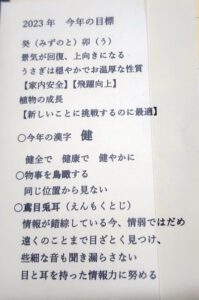 2023年　今年の目標
癸（みずのと）卯（う）
景気が回復、上向きになる
うさぎは穏やかでお温厚な性質
【家内安全】【飛躍向上】
植物の成長
【新しいことに挑戦するのに最適】
〇今年の漢字　健
健全で　健康で　健やかに
〇物事を鳥瞰する
同じ位置から見ない
〇鳶目兎耳（えんもくとじ）
情報が錯綜している今、情弱ではだめ
遠くのことまで目ざとく見つけ、
些細な音も聞き漏らさない
目と耳を持った情報力に努める